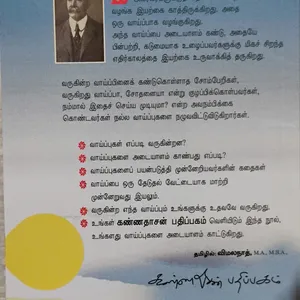 வழங்க இயற்கை காத்திருக்கிறது. அதை
ஒரு வாய்ப்பாக வழங்குகிறது.
அந்த வாய்ப்பை அடையாளம் கண்டு, அதையே
பின்பற்றி, கடுமையாக உழைப்பவர்களுக்கு மிகச் சிறந்த
எதிர்காலத்தை இயற்கை உருவாக்கித் தருகிறது.
வருகின்ற வாய்ப்பினைக் கண்டுகொள்ளாத சோம்பேறிகள்,
வருகிறது வாய்ப்பா, சோதனையா என்று குழப்பிக்கொள்பவர்கள்,
நம்மால் இதைச் செய்ய முடியுமா? என்று அவநம்பிக்கை
கொண்டவர்கள் நல்ல வாய்ப்புகளை நழுவவிட்டுவிடுகிறார்கள்.
வாய்ப்புகள் எப்படி வருகின்றன?
வாய்ப்புகளை அடையாளம் காண்பது எப்படி?
வாய்ப்புகளைப் பயன்படுத்தி முன்னேறியவர்களின் கதைகள்
வாய்ப்பை ஒரு தேடுதல் வேட்டையாக மாற்றி
முன்னேறுவது இயலும்.
வருகின்ற எந்த வாய்ப்பும் உங்களுக்கு உதவவே வருகிறது.
உங்கள் கண்ணதாசன் பதிப்பகம் வெளியிடும் இந்த நூல்,
உங்களது வாய்ப்புகளை அடையாளம் காட்டுகிறது.
தமிழில்: விமலநாத், M.A., M.B.A.,
கண்ணதாசன் பதிப்பகம்